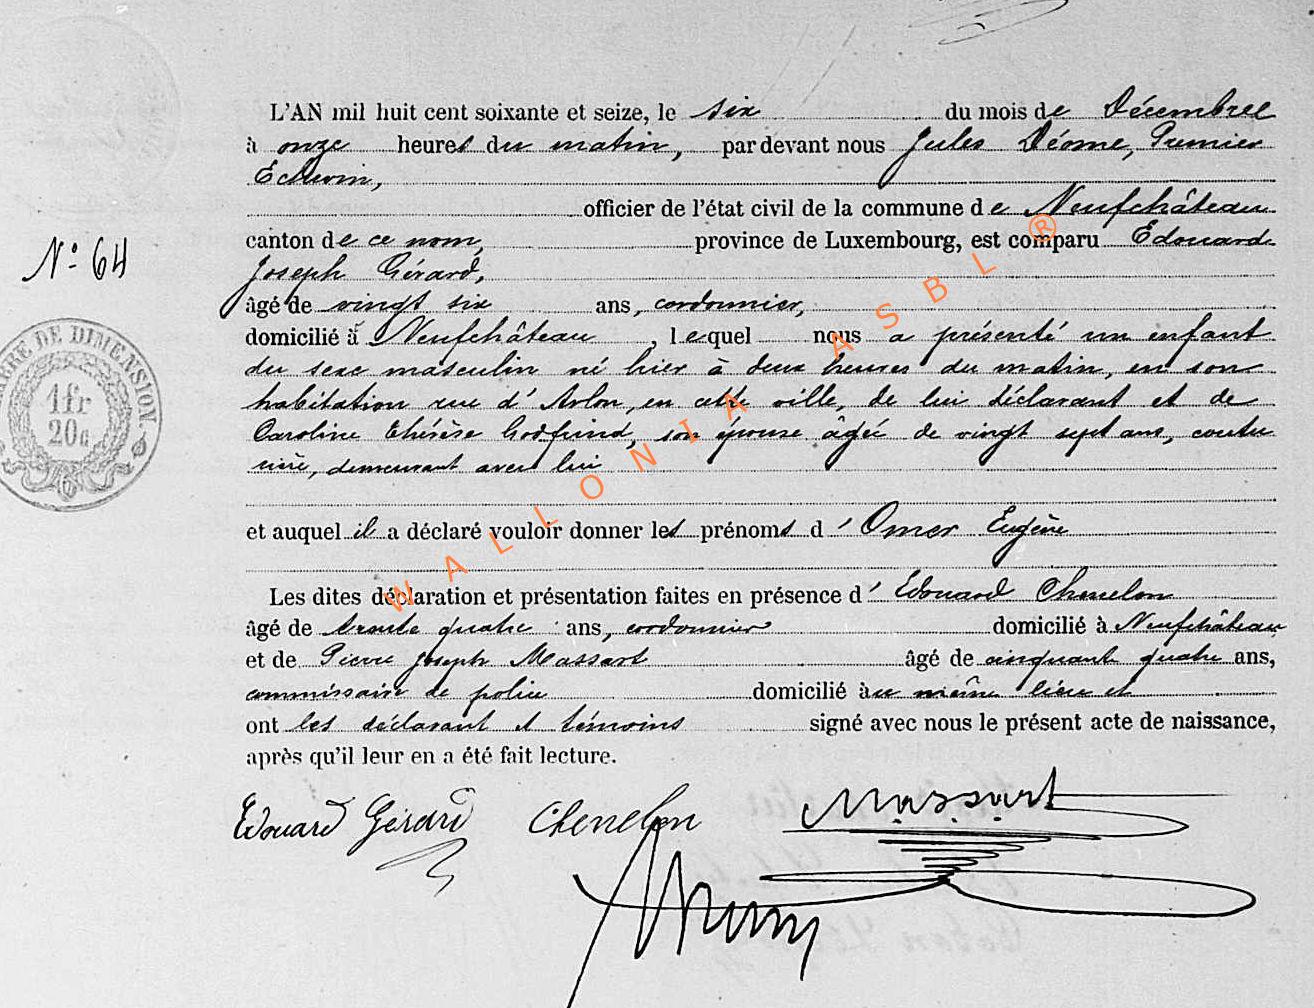 L'AN mil huit cent soixante et seize, le six du mois de Décembre
à onze heures du matin, par devant nous Jules Déome, Premier
Echevin,
officier de l'état civil de la commune de Neufchâteau
canton de ce nom, province de Luxembourg, est comparu Edouard
N° 64
Joseph Gérard,
âgé de vingt six ans, cordonnier,
domicilié à Neufchâteau, lequel nous a présenté un enfant
du sexe masculin né hier à deux heures du matin, en son
habitation rue d'Arlon, en cette ville, de lui déclarant et de
Caroline Thérèse Godfrind, son épouse âgée de vingt sept ans, coutu
rière, demeurant avec lui
et auquel il a déclaré vouloir donner les prénoms d'Omer Eugène
Les dites déclaration et présentation faites en présence d'Edouard Chenelon
âgé de trente quatre ans, cordonnier domicilié à Neufchâteau
et de Pierre Joseph Massart âgé de cinquante quatre ans,
commissaire de police domicilié au même lieu et
ont les déclarant et témoins signé avec nous le présent acte de naissance,
après qu'il leur en a été fait lecture.
Edouard Gérard Chenelon Massart
DE DIMENSION
1fr
20c
WALLONIA ASBL ®